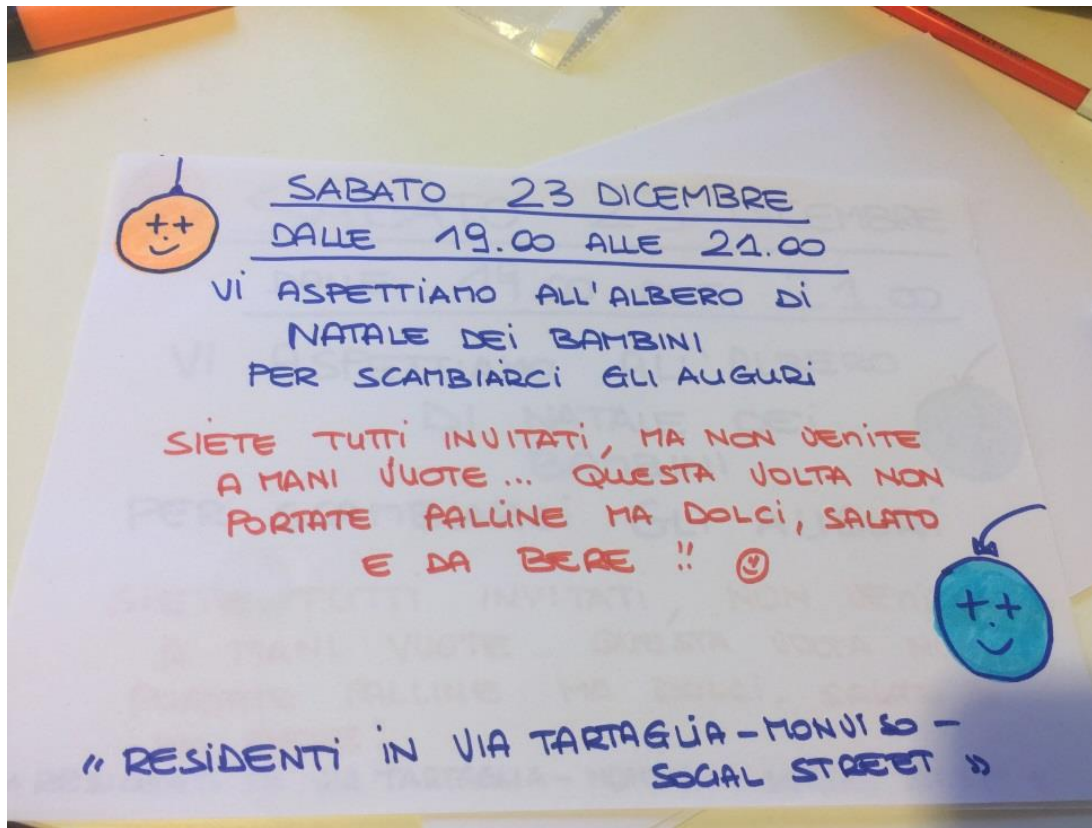 SABATO 23 DICEMBRE
DALLE 19.00 ALLE 21.00
Vi ASPETTIAMO ALL'ALBERO Di
NATALE DEi BAMBINI
PER SCAMBIARCi GLI AUGURi
SIETE TUTTI INVITATI, MA NON VENITE
A MANI VUOTE... QUESTA VOLTA NON
PORTATE PALLINE MA DOLCI, SALATO
E DA BERE !!
" RESiDENTi iN VIA TARTAGLiA - MONVISO -
SOCIAL STREET "